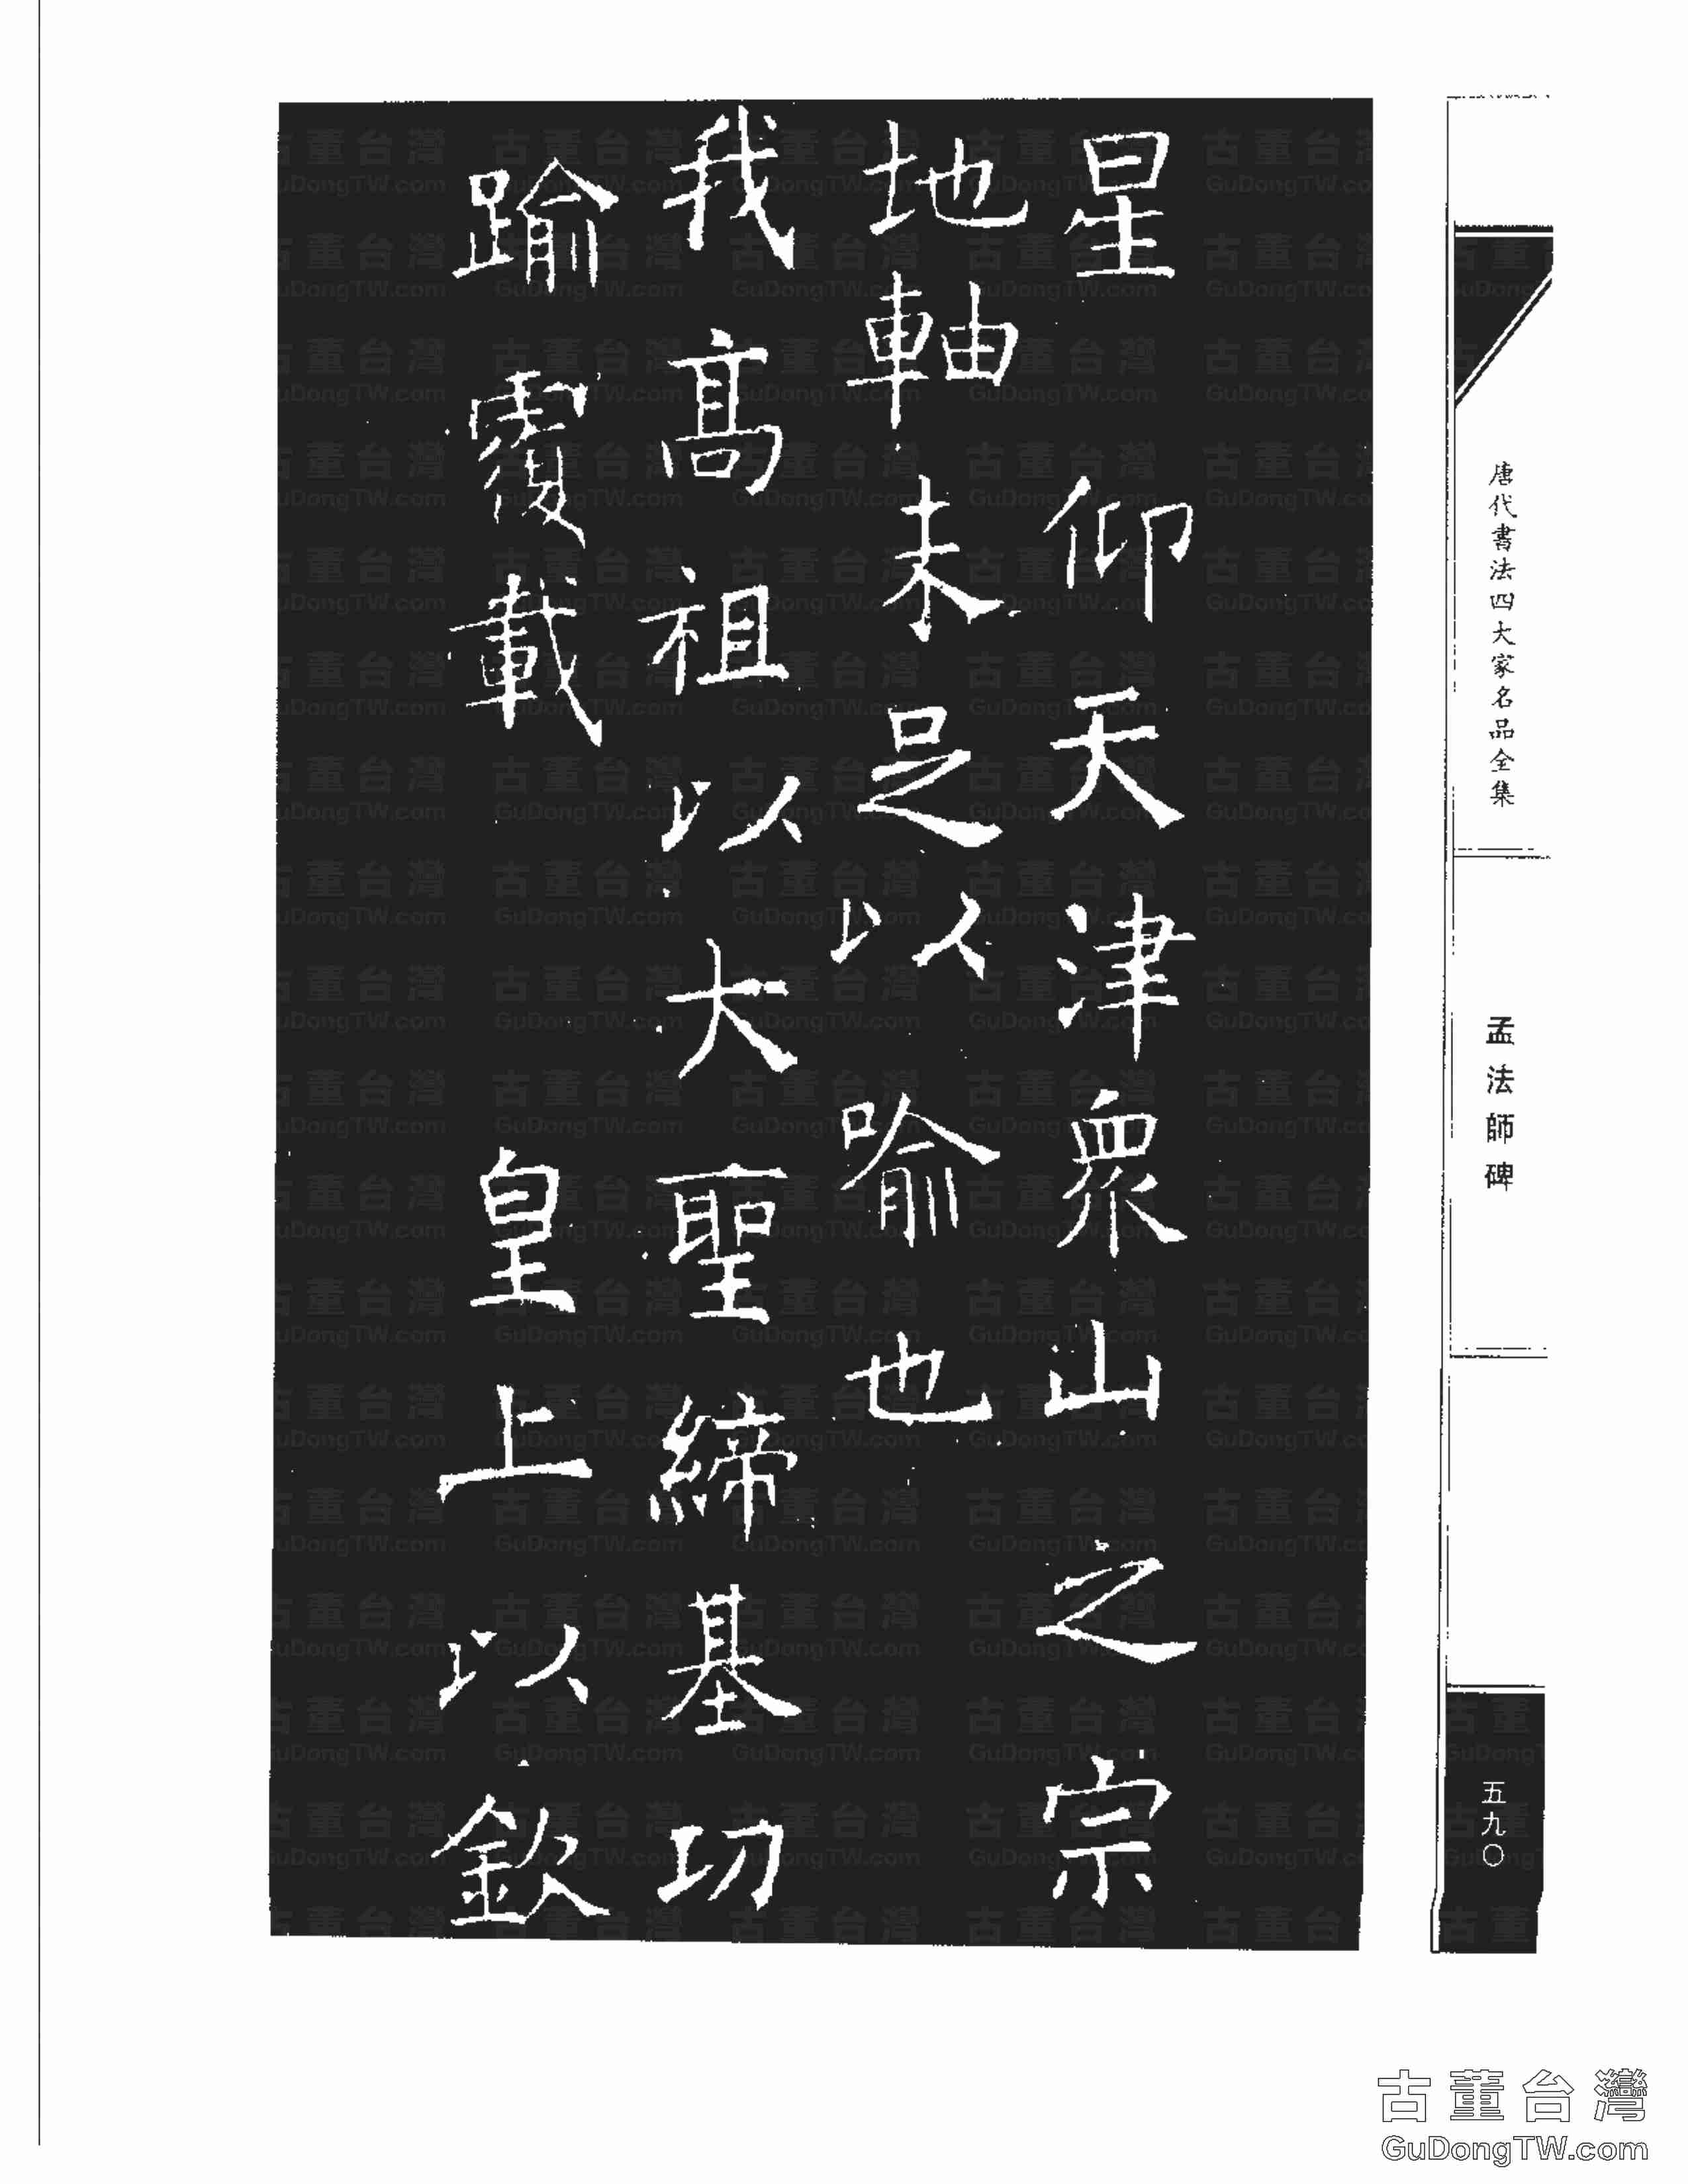 星仰天津衆山之宗
地軸未足以喻也
我高祖以大聖締基功
踰覆載皇上以欽
唐代書法四大家名品全集
孟法師碑
五九〇
古董台灣
GuDongTW.com